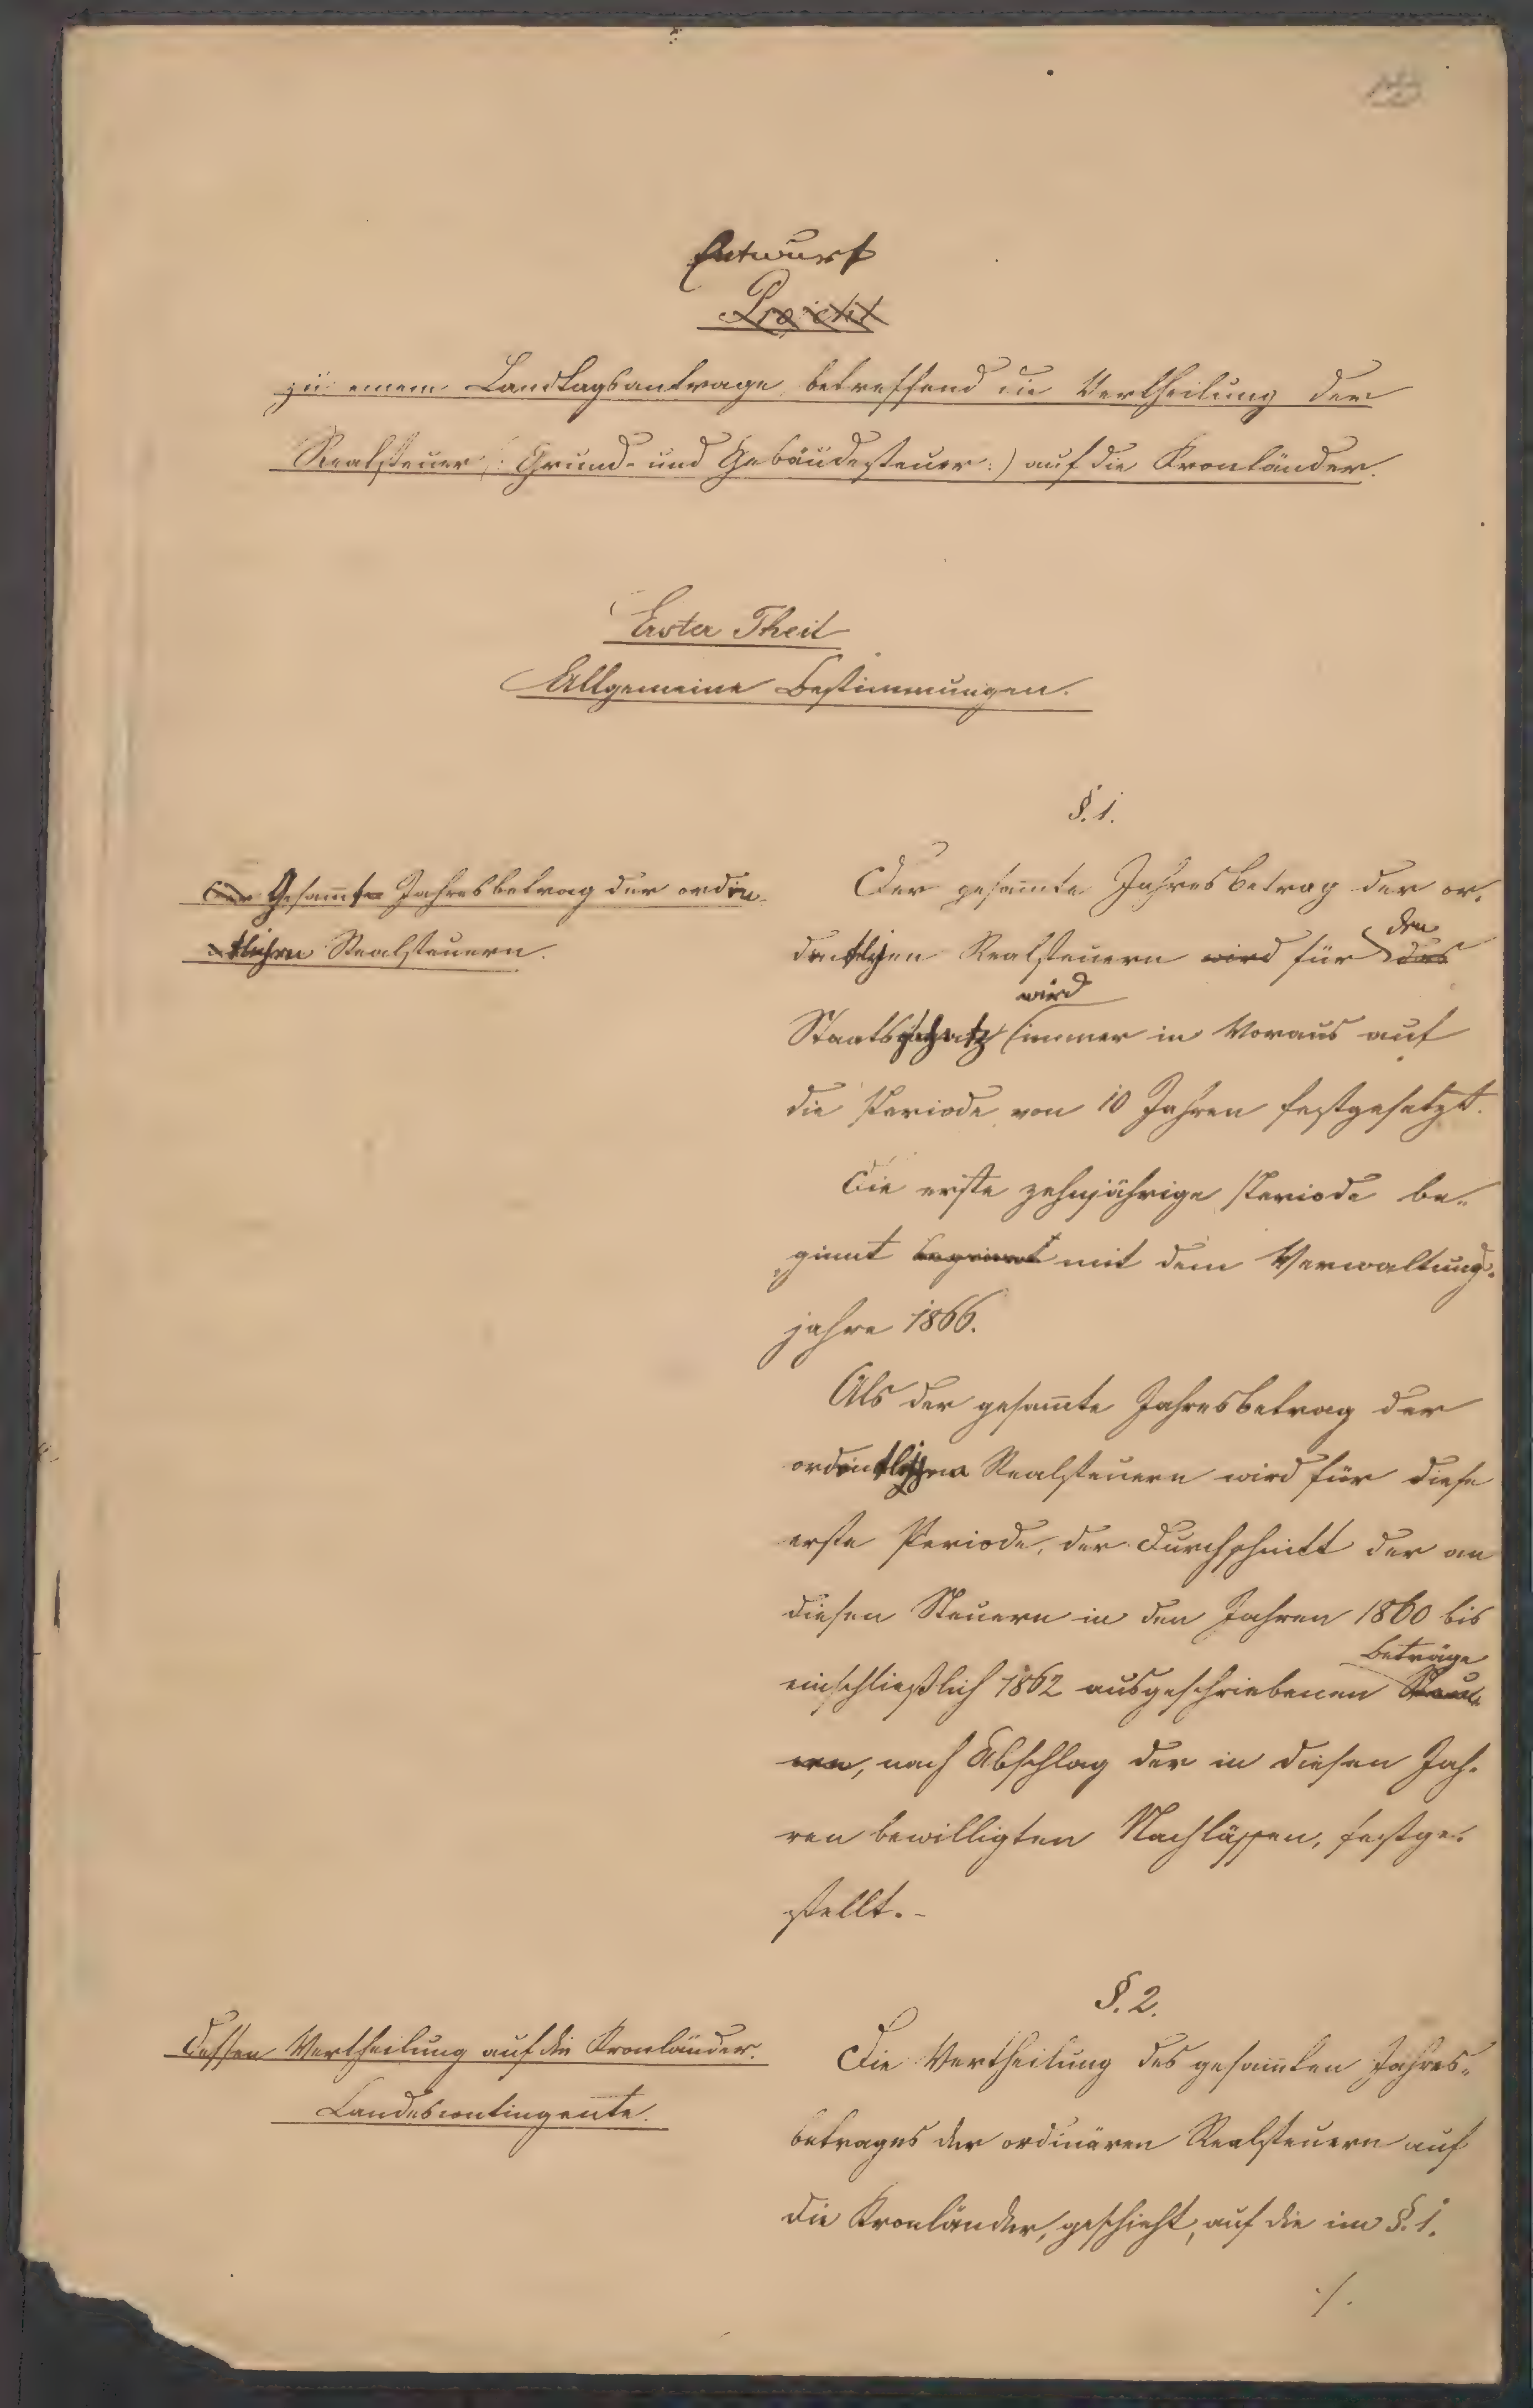 Entwurf
Projekt
zu einem Landtagsantrage, betreffend die Vertheilung der
Realsteuer (: Grund- und Gebäudesteuer :) auf die Kronländer.
Erster Theil
Allgemeine Bestimmungen.
§. 1.
Der Gesam̅te Jahresbetrag der orden-
tlichen Realsteuern.
Der gesam̅te Jahresbetrag der or-
den
dentlichen Realsteuern wird für das
wird
Staatsschatz immer in Voraus auf
die Periode von 10 Jahren festgesetzt.
Die erste zehnjährige Periode be-
ginnt beginnt mit dem Verwaltungs-
jahre 1866.
Als der gesam̅te Jahresbetrag der
ordentlichen Realsteuern wird für diese
erste Periode, der Durchschnitt der an
diesen Steuern in den Jahren 1860 bis
Beträge
einschließlich 1862 ausgeschriebenen Steu-
ern, nach Abschlag der in diesen Jah-
ren bewilligten Nachlässen, festge-
stellt. -
§. 2.
Dessen Vertheilung auf die Kronländer.
Landescontingente.
Die Vertheilung des gesam̅ten Jahres-
betrages der ordinären Realsteuern auf
die Kronländer, geschieht, auf die im §. 1.
./.